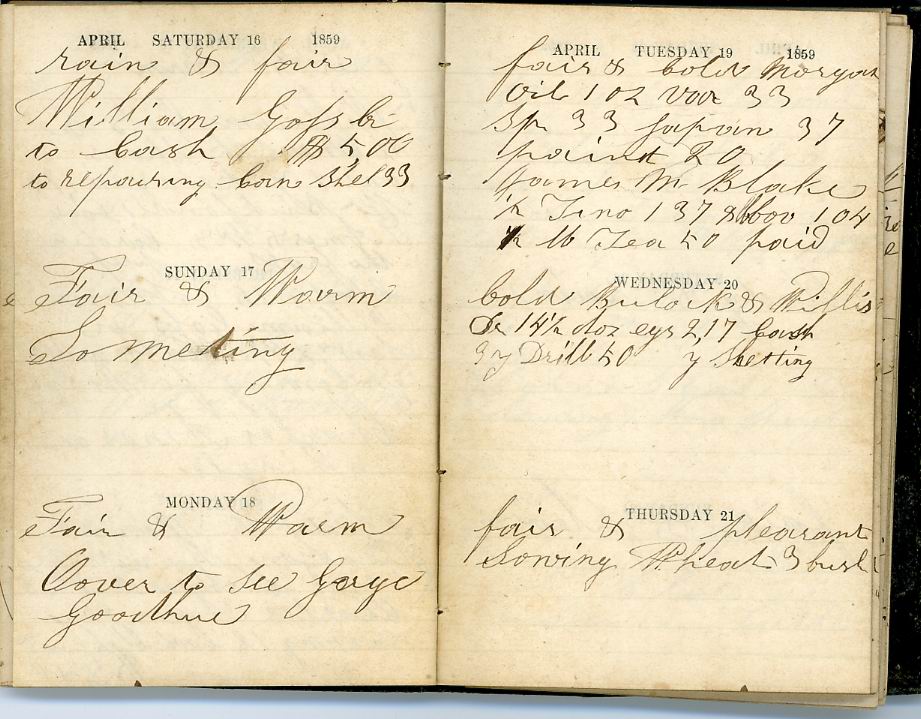 APRIL SATURDAY 16 1859
rain & fair
William Goss Cr
to Cash $5,00
to repairing 33
SUNDAY 17
Fair & Warm
To Meeting
MONDAY 18
Fair & Warm
Oover to see Gorge
Goodhue
APRIL TUESDAY 19 1859
fair & Cold Morgan
Oil 1 02 33
Sp 33 Japan 37
paint 20
James M Blake
1/2 137 104
1/2 lb Tea 50 paid
WEDNESDAY 20
Cold & Willis
Dr 14½ doz egs 2,17 Cash
3 y Drill 50 y Shetting
THURSDAY 21
fair & pleasant
Sowing Wheat 3 bush